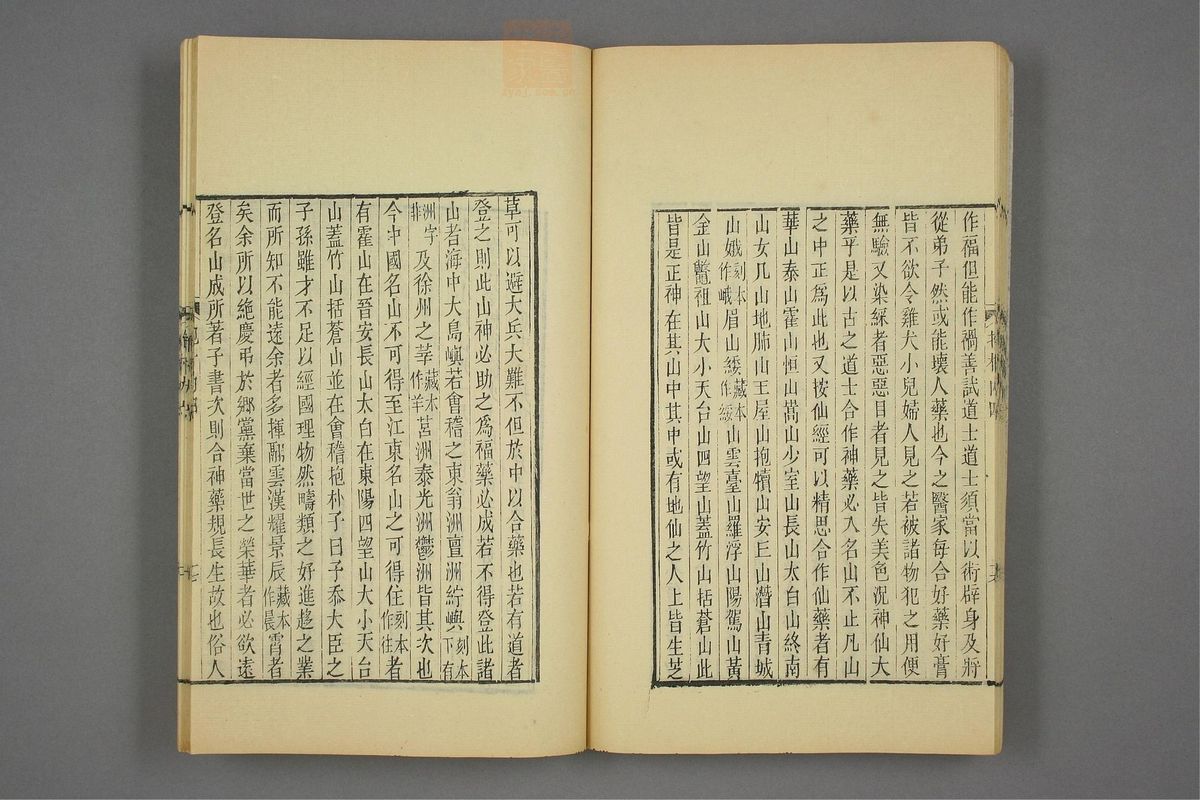 作福但能作禍善試道士道士須當以術辟身及將
從弟子然或能壞人藥也今之醫家每合好藥好膏
皆不欲令雞犬小兒婦人見之若被諸物犯之用便
無驗又染綵者惡惡目者見之皆失美色況神仙大
藥乎是以古之道士合作神藥必入名山不止凡山
之中正爲此也又按仙經可以精思合作仙藥者有
華山泰山霍山恒山嵩山少室山長山太白山終南
山女几山地肺山王屋山抱犢山安丘山潛山青城
山娥刻本作峨眉山緌藏本作綏山雲臺山羅浮山陽駕山黃
金山鼈祖山大小天台山四望山蓋竹山括蒼山此
皆是正神在其山中其中或有地仙之人上皆生芝
草可以避大兵大難不但於中以合藥也若有道者
登之則此山神必助之爲福藥必成若不得登此諸
山者海中大島嶼若會稽之東翁洲亶洲紵嶼刻本下有
洲字非及徐州之莘藏本作羊莒洲泰光洲鬱洲皆其次也
今中國名山不可得至江東名山之可得住刻本作往者
有霍山在晉安長山太白在東陽四望山大小天台
山蓋竹山括蒼山並在會稽抱朴子曰予忝大臣之
子孫雖才不足以經國理物然疇類之好進趨之業
而所知不能遠余者多揮翮雲漢耀景辰藏本作晨霄者
矣余所以絶慶弔於鄉黨棄當世之榮華者必欲遠
登名山成所著子書次則合神藥規長生故也俗人